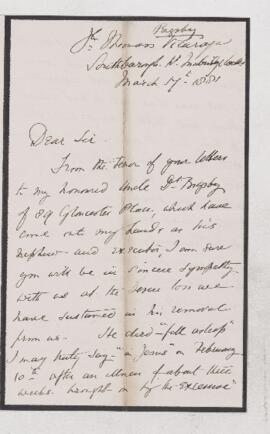 Bigsby
St. Thomas Vicarage
Southborough Nr. Tunbridge Wells
March 17th 1881
Dear Sir
From the tenor of your letters
to my honored Uncle Dr. Bigsby
of 89 Gloucester Place, which have
come out my hands as his
nephew - and executor, I am sure
you will be in sincere sympathy
with us at the serious loss we
have sustained in his removal
from us. He died - "fell asleep"
I may truly say - "in Jesus" on February
10th after an illness of about three
weeks brought on by the excessive